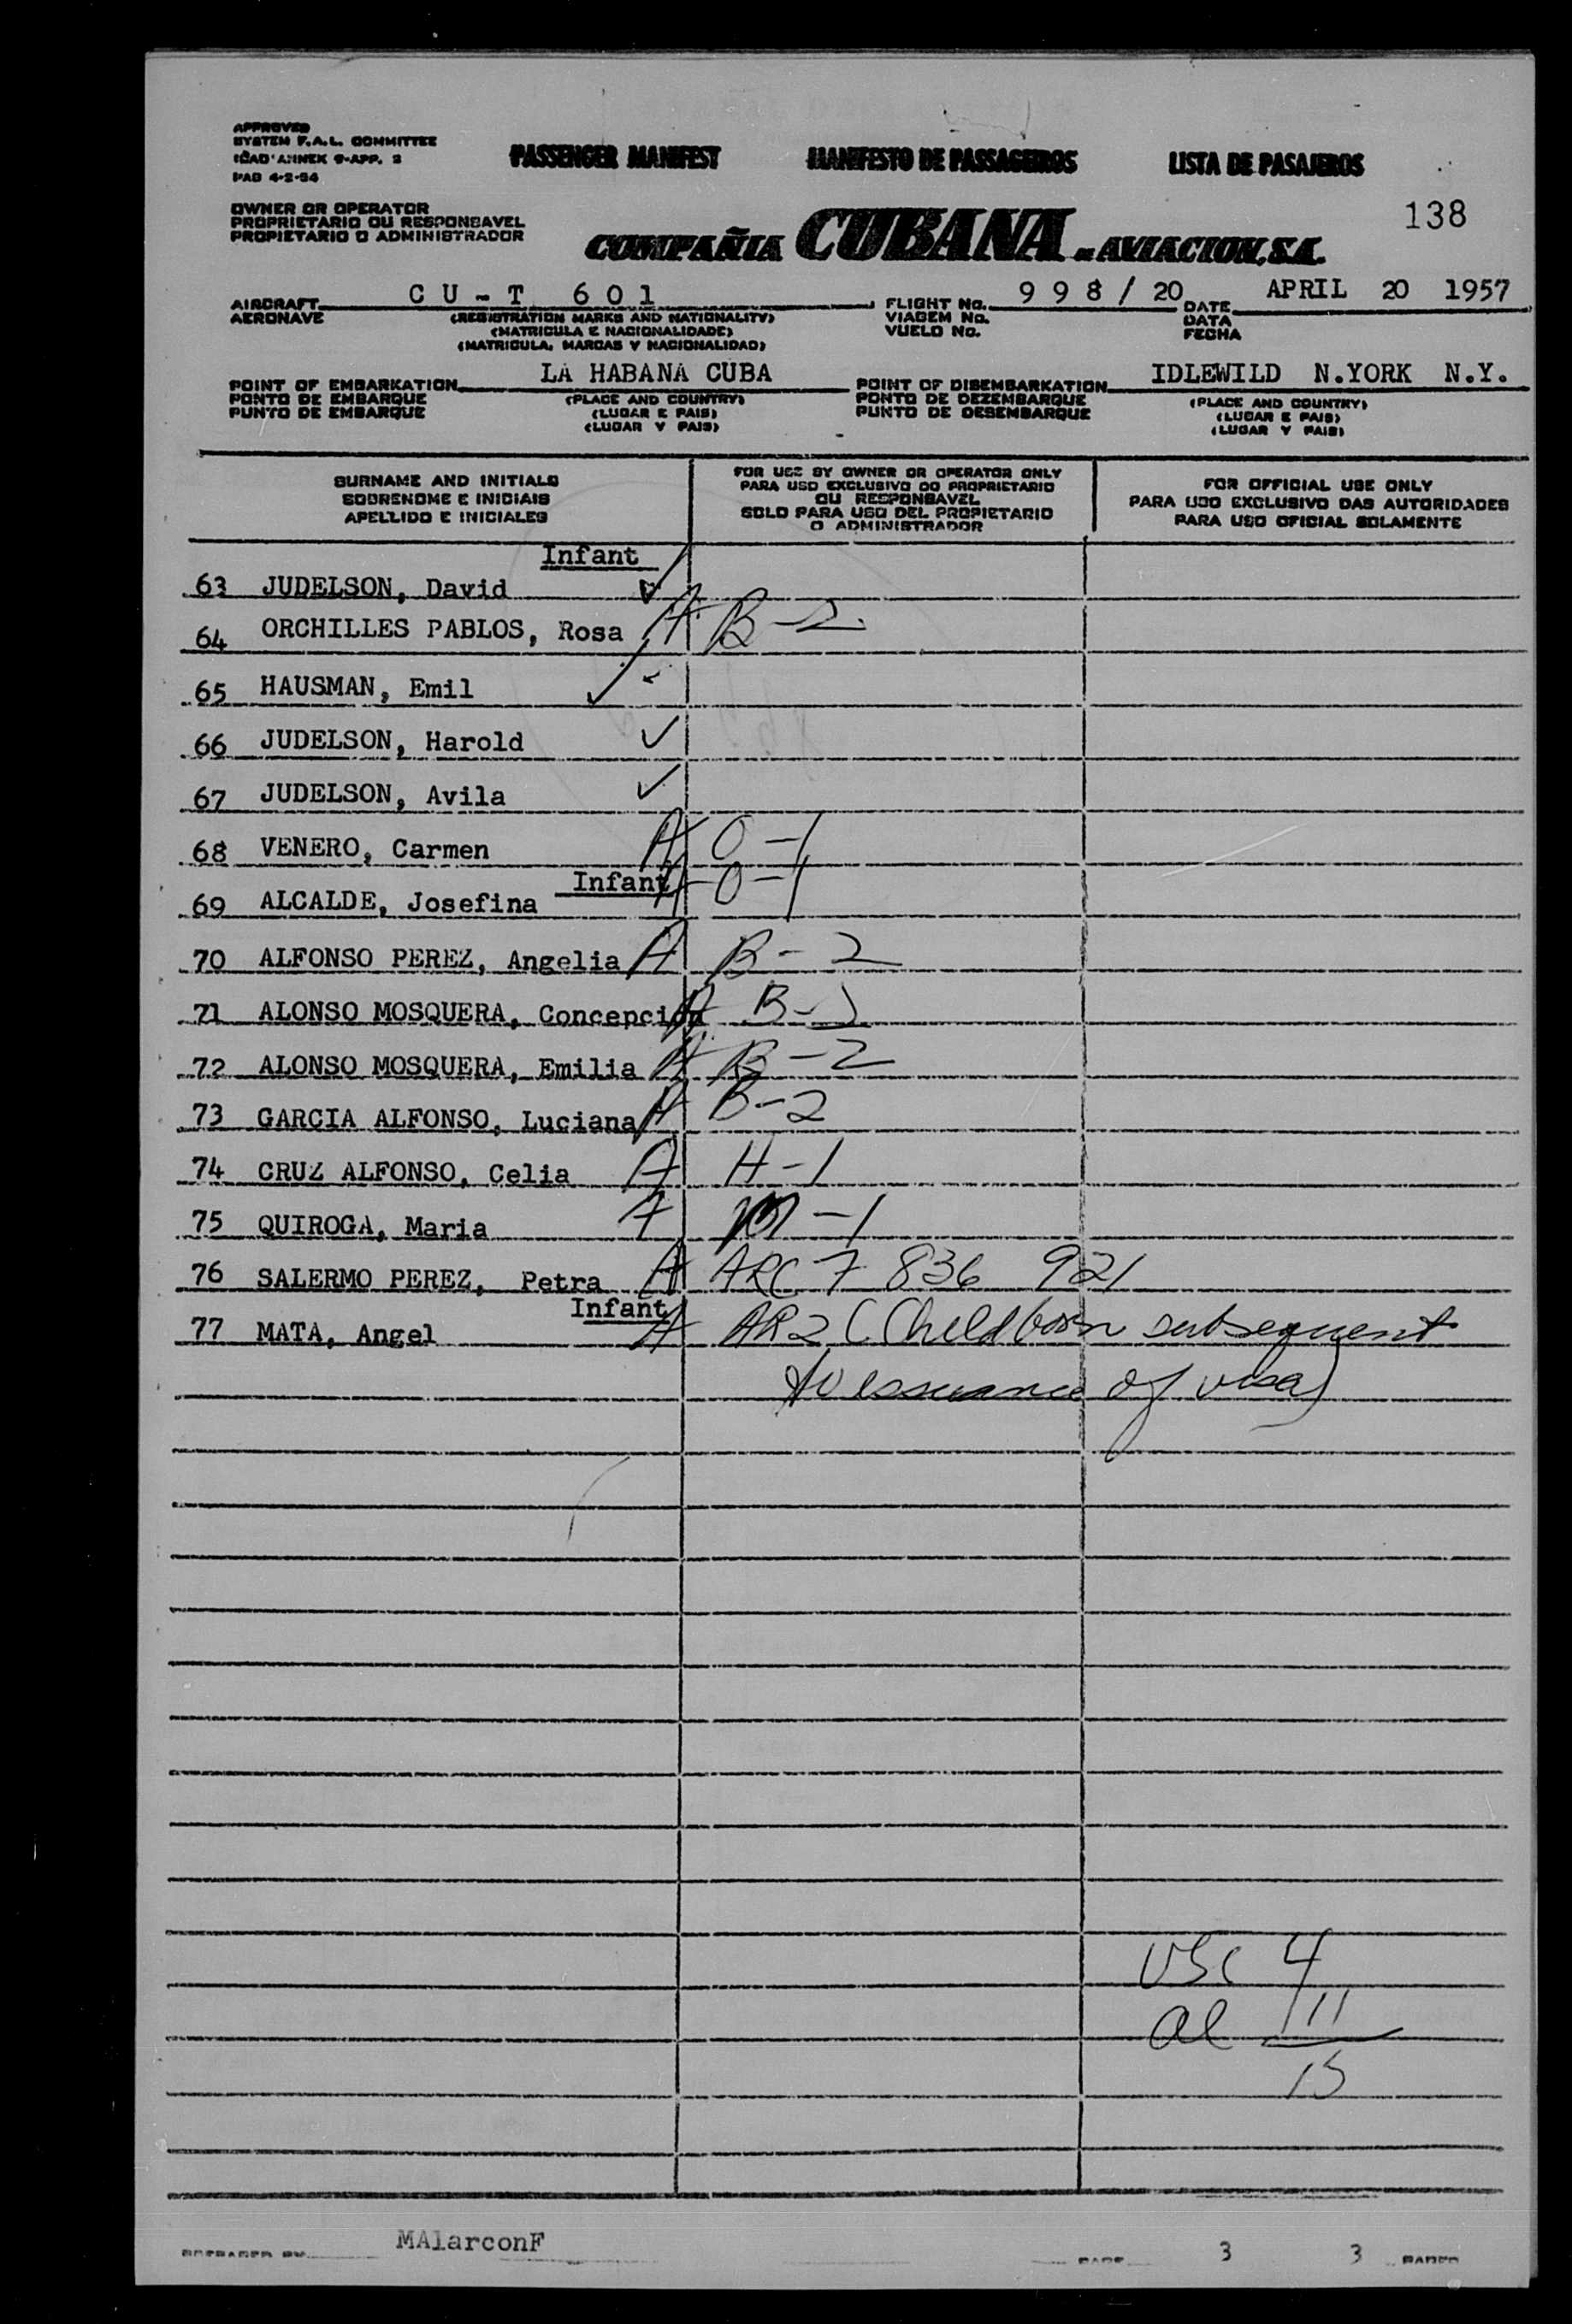 APPROVED
SYSTEM F.A.L. COMMITTEE
ICAO ANNEX 9-APP. 2
PAD 4-2-54
PASSENGER MANIFEST
MANIFESTO DE PASSAGEIROS
LISTA DE PASAJEROS
138
OWNER OR OPERATOR
PROPRIETARIO OU RESPONSAVEL
PROPIETARIO O ADMINISTRADOR
COMPAÑIA CUBANA DE AVIACION, S.A.
AIRCRAFT CU-T 601 FLIGHT No. 998/20 DATE APRIL 20 1957
AERONAVE (REGISTRATION MARKS AND NATIONALITY) VIAGEM No. DATA
(MATRICULA E NACIONALIDADE) VUELO No. FECHA
(MATRICULA, MARCAS Y NACIONALIDAD)
POINT OF EMBARKATION LA HABANA CUBA POINT OF DISEMBARKATION IDLEWILD N.YORK N.Y.
PONTO DE EMBARQUE (PLACE AND COUNTRY) PONTO DE DEZEMBARQUE (PLACE AND COUNTRY)
PUNTO DE EMBARQUE (LUGAR E PAIS) PUNTO DE DESEMBARQUE (LUGAR E PAIS)
(LUGAR Y PAIS) (LUGAR Y PAIS)
SURNAME AND INITIALS
SOBRENOME E INICIAIS
APELLIDO E INICIALES
FOR USE BY OWNER OR OPERATOR ONLY
PARA USO EXCLUSIVO DO PROPRIETARIO
OU RESPONSAVEL
SOLO PARA USO DEL PROPIETARIO
O ADMINISTRADOR
FOR OFFICIAL USE ONLY
PARA USO EXCLUSIVO DAS AUTORIDADES
PARA USO OFICIAL SOLAMENTE
Infant
63 JUDELSON, David
64 ORCHILLES PABLOS, Rosa A B-2
65 HAUSMAN, Emil
66 JUDELSON, Harold
67 JUDELSON, Avila
68 VENERO, Carmen A O-1
Infant
69 ALCALDE, Josefina A O-1
70 ALFONSO PEREZ, Angelia A B-2
71 ALONSO MOSQUERA, Concepción A B-2
72 ALONSO MOSQUERA, Emilia A B-2
73 GARCIA ALFONSO, Luciana A B-2
74 CRUZ ALFONSO, Celia A H-1
75 QUIROGA, Maria A M-1
76 SALERMO PEREZ, Petra A ARC 7 836 921
Infant
77 MATA, Angel A AR2 (Child born subsequent
to issuance of visa)
USC 4
al 11
15
PREPARED BY MAlarconF PAGE 3 3 PAGES